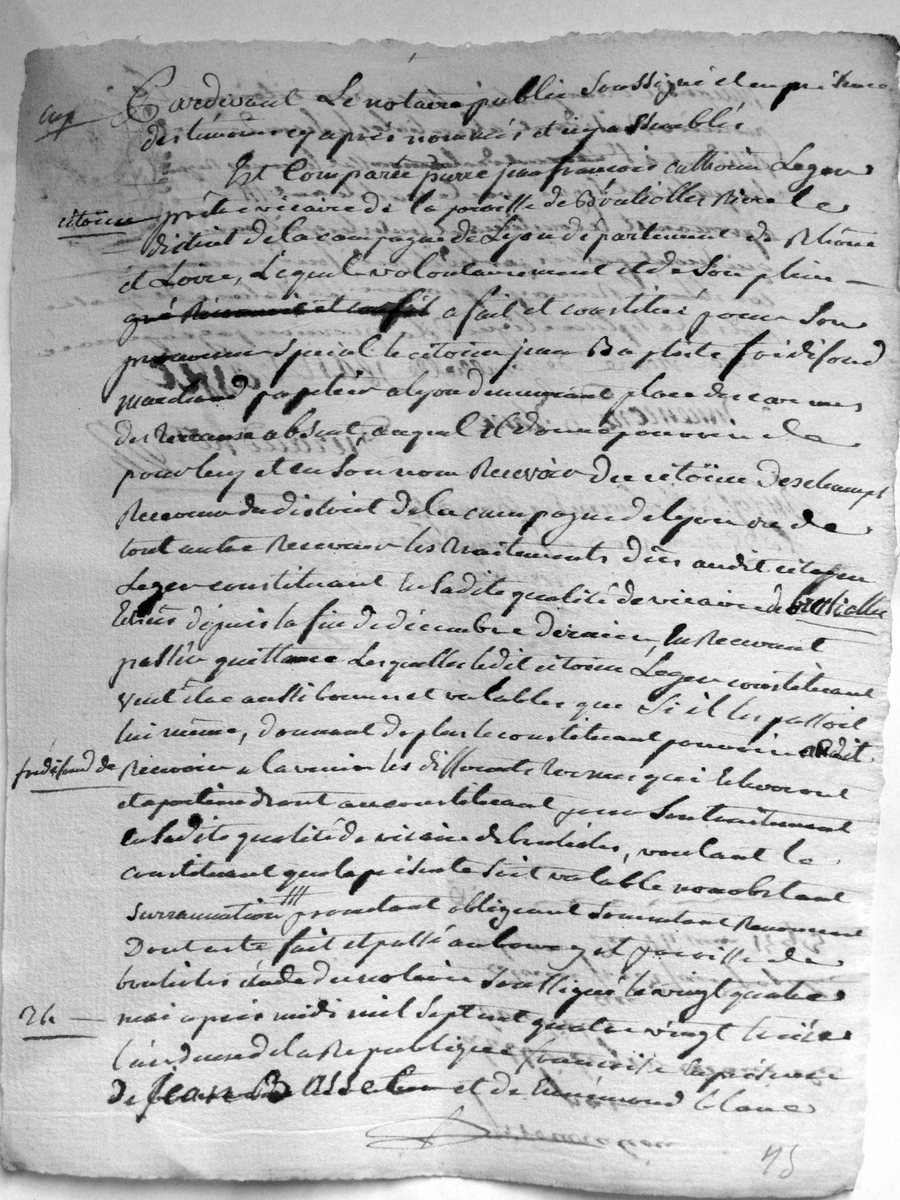 Pardevant Le notaire public Soussigné et en présence
des témoins cy après nommés et
Est Comparu pierre jean françois Leger
citoien
prêtre vicaire de la paroisse de le
district de la campagne de Lyon departement de Rhône
et Loire, Lequel volontairement et de Son plein
gré a fait et constitué pour Son
procureur Special le citoien jean Baptiste
marchand papetier a lyon demeurant place des carmes
absent auquel Il donne pouvoir de
pour luy et en Son nom Recevoir du citoien Deschamps
Receveur du district de la campagne de lyon ou de
tout autre Receveur les traitements dûs audit citoyen
Leger constituant En Sadite qualité de vicaire de
depuis la fin de décembre dernier, En Recevant
passer quittance Lesquelles ledit citoien Leger constituant
veut être aussi bonnes et valables que Si il les passoit
lui même, donnant de plus le constituant pouvoir audit
de
Recevoir a lavenir les differents termes qui Echeront
et apartiendront au constituant pour Son traitement
en Sadite qualité de vicaire de voulant le
constituant que la présente Soit valable nonobstant
Surrannation promettant obligeant Soumettant Renonçant
Dont acte fait et passé au bourg et paroisse de
étude du notaire Soussigné le vingt quatre
24
mai après midi mil Sept cent quatre vingt treize
L'an deux de la Republique françoise En présence
de Jean et de blanc